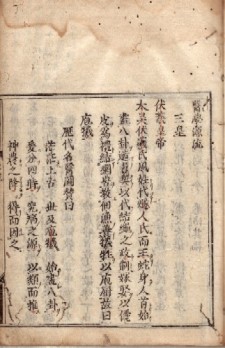 醫學源流
三皇
伏羲皇帝
太昊伏羲氏風姓代燧人氏而王蛇身人首始
畫八卦造書契以代結繩之政制嫁娶以儷
皮為禮結網罟教佃漁養犧牲以庖廚故曰
庖犧
歷代名醫圖贊曰
茫茫上古 世及庖犧 始畫八卦
爰分四時 究病之源 以類而推
神農之降 得而因之